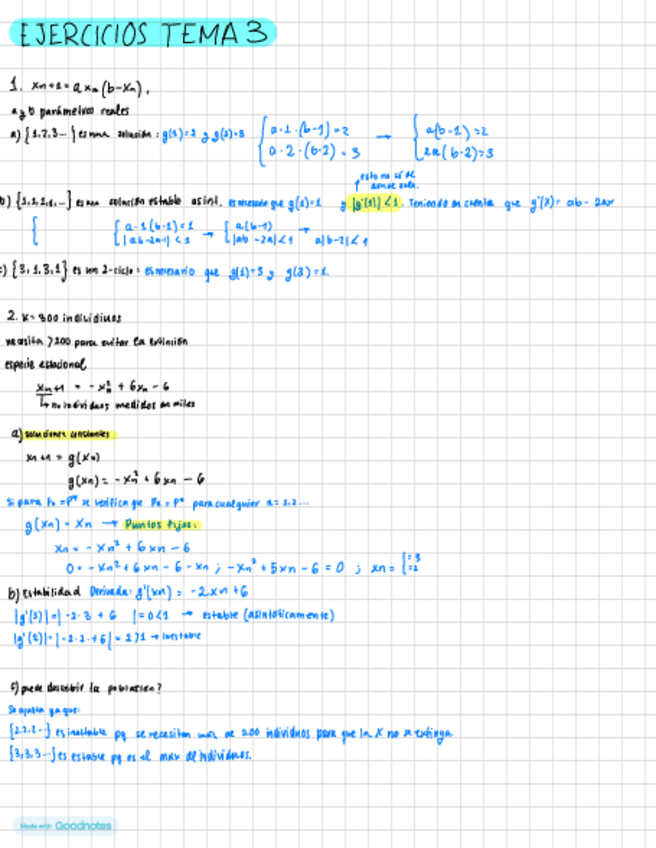 EJERCICIOS TEMA 3
1. xn+1 = a xn (b-xn),
a y b parámetros reales
a) {1,2,3...} es una solución: g(1)=2 y g(2)=3 { a·1·(b-1)=2 → { a(b-1)=2
a·2·(b-2)=3 2a(b-2)=3
esto no sé de
donde sale.
b) {1,1,1,1,...} es una solución estable asint. es necesario que g(1)=1 y |g'(1)|<1. Teniendo en cuenta que g'(x)= ab-2ax
{ { a·1(b-1)=1 → { a(b-1) →
|ab-2a·1|<1 |ab-2a|<1 a|b-2|<1
c) {3,1,3,1} es un 2-ciclo: es necesario que g(1)=3 y g(3)=1.
2. K= 300 individuos
necesita >200 para evitar la extinción
especie estacional
xn+1 = -xn² + 6xn - 6
↳ no individuos medidos en miles
a) soluciones constantes
xn+1 = g(xn)
g(xn) = -xn² + 6xn - 6
Si para P0=P* se verifica que Pn = P* para cualquier n=1,2...
g(xn) = xn → Puntos fijos:
xn = -xn² + 6xn - 6
0= -xn² + 6xn - 6 - xn ; -xn² + 5xn - 6 = 0 ; xn = { =3
=2
b) Estabilidad Derivada: g'(xn) = -2xn+6
|g'(3)|=|-2·3 + 6 |=0<1 → estable (asintóticamente)
|g'(2)|=|-2·2+6|=2>1 → Inestable
c) puede describir la población?
Se ajusta ya que:
{2,2,2...} es inestable pq se necesitan más de 200 individuos para que la X no se extinga
{3,3,3...} es estable pq es el max de individuos.
Made with Goodnotes